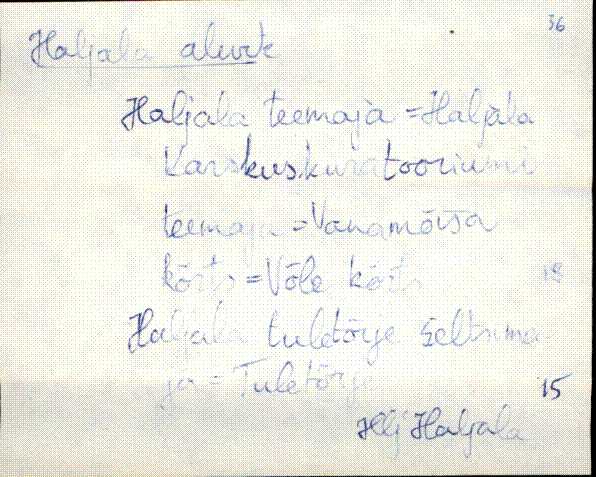 36
Haljala alevik
Haljala teemaja = Haljala
Karskuskuratooriumi
teemaja = Vanamõisa
kõrts = Võle kõrts 18
Haljala tuletõrje seltsima-
ja = Tuletõrje 15
Hlj Haljala